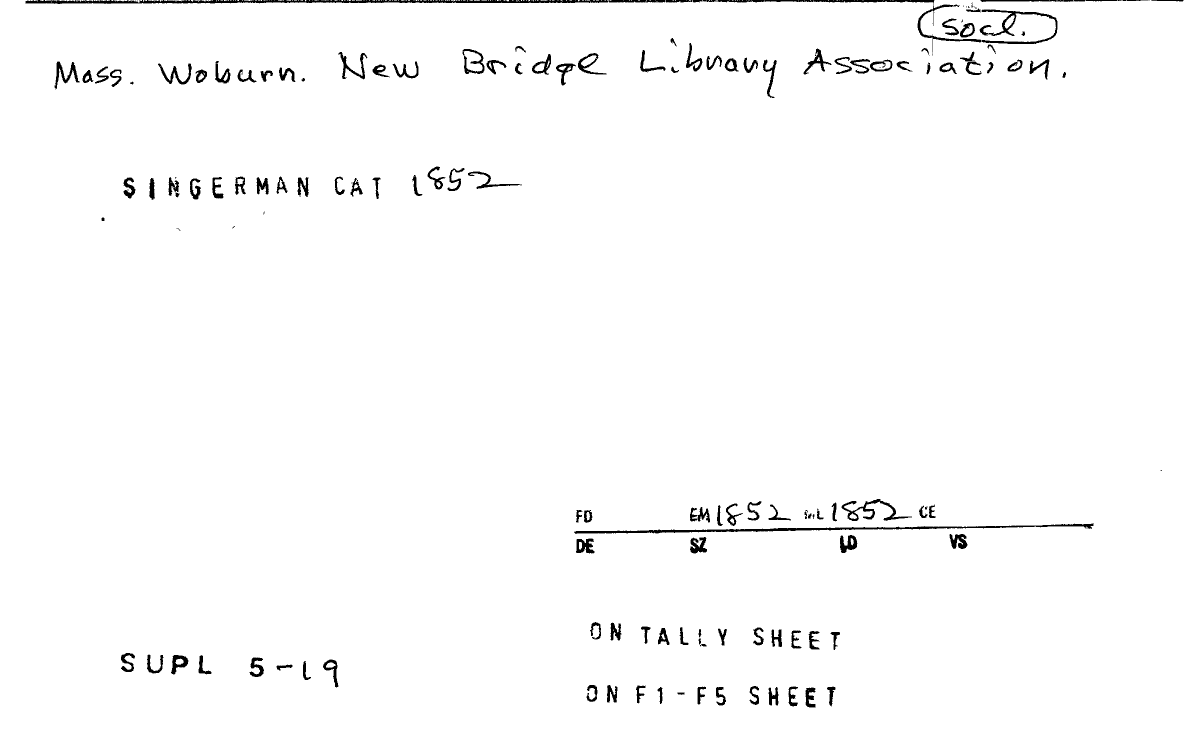 socl.
Mass. Woburn. New Bridge Library Association.
SINGERMAN CAT 1852
FD EM 1852 inL 1852 CE
DE SZ LD VS
ON TALLY SHEET
SUPL 5-19
ON F1-F5 SHEET